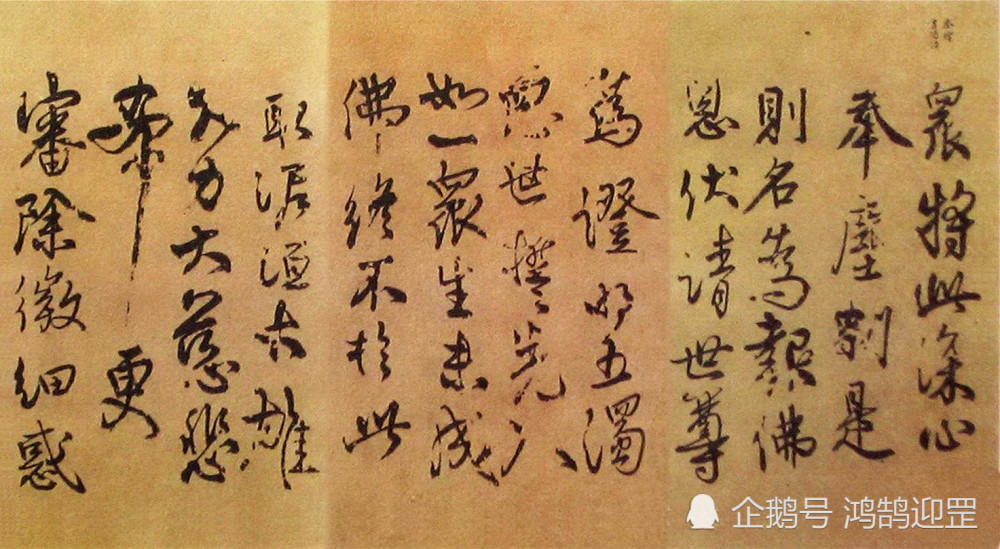 眾將此深心
奉塵剎是
則名為報佛
恩伏請世尊
為證明五濁
惡世誓先入
如一眾生未成
佛終不於此
取泥洹大雄
大力大慈悲
希更
審除微細惑
企鹅号 鸿鹄迎罡